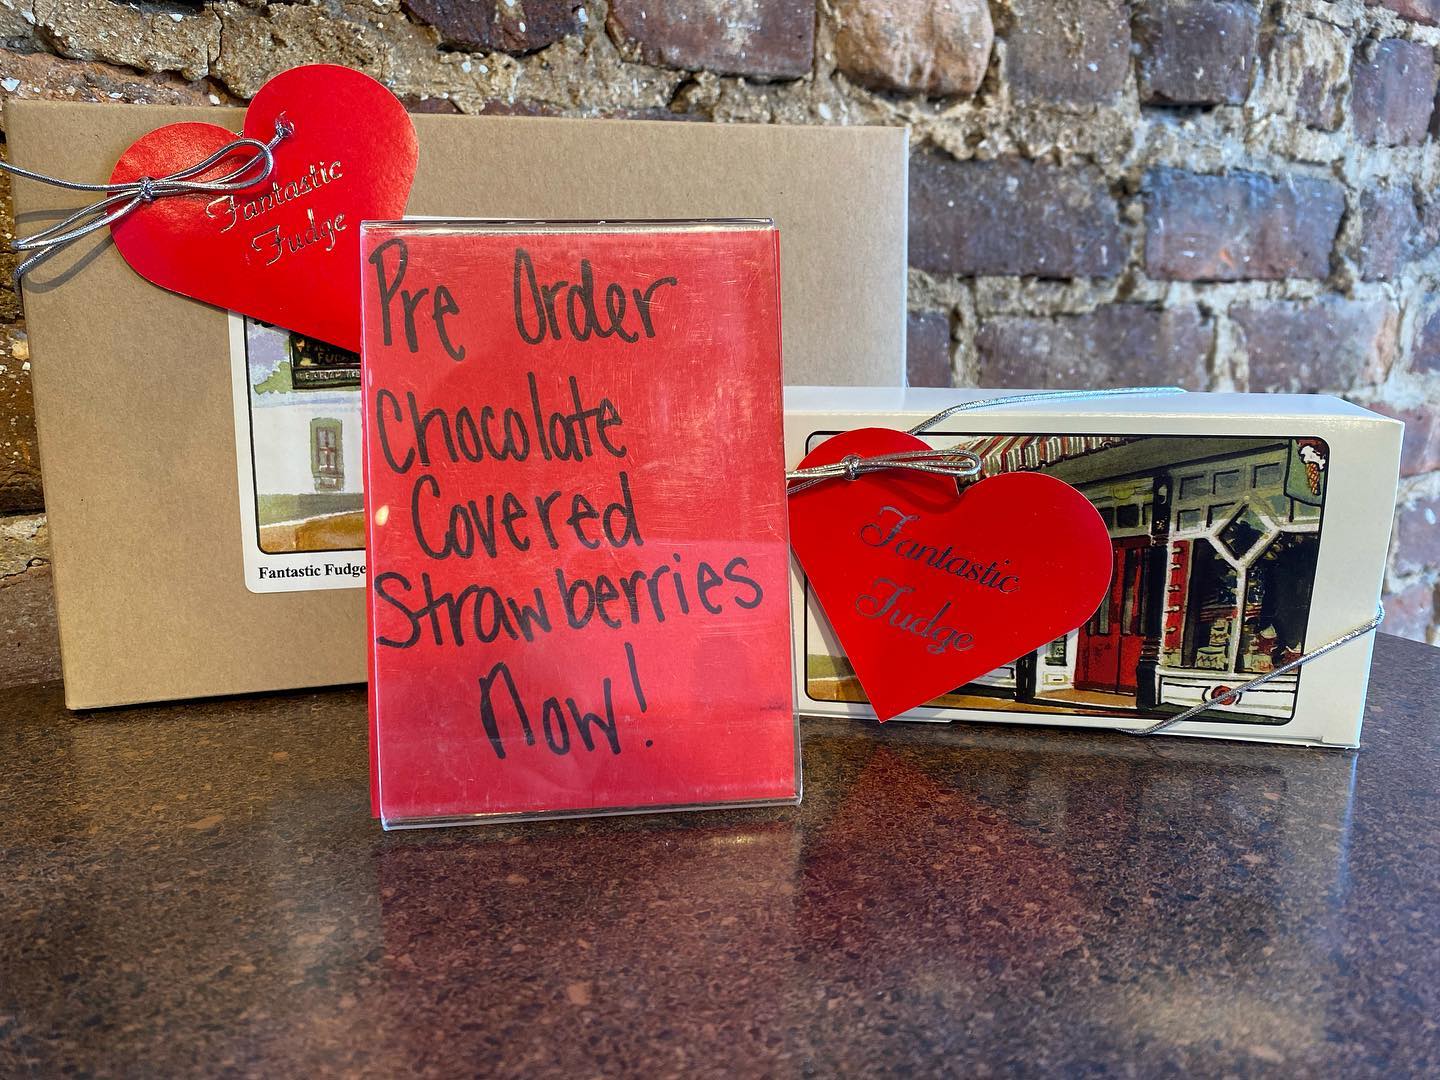 Fantastic
Fudge
Fantastic Fudge
Pre Order
Chocolate
Covered
Strawberries
Now!
Fantastic
Fudge